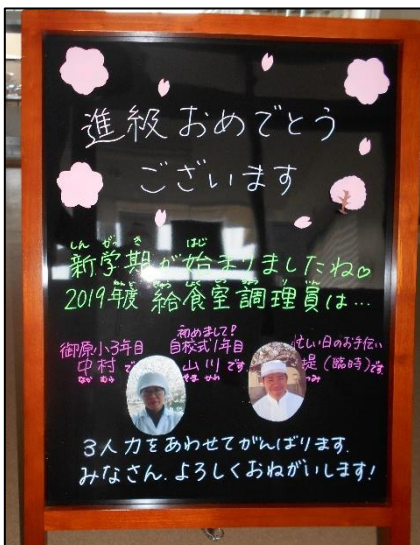 進級おめでとう
ございます
しん がっ き はじ
新学期が始まりましたね♡
2019年度 給食室調理員は…
御原小3年目
中村です
なか むら
初めまして!
自校式1年目
山川です
やま かわ
忙しい日のお手伝い
堤(臨時)です
つつみ
3人力をあわせてがんばります.
みなさん.よろしくおねがいします!